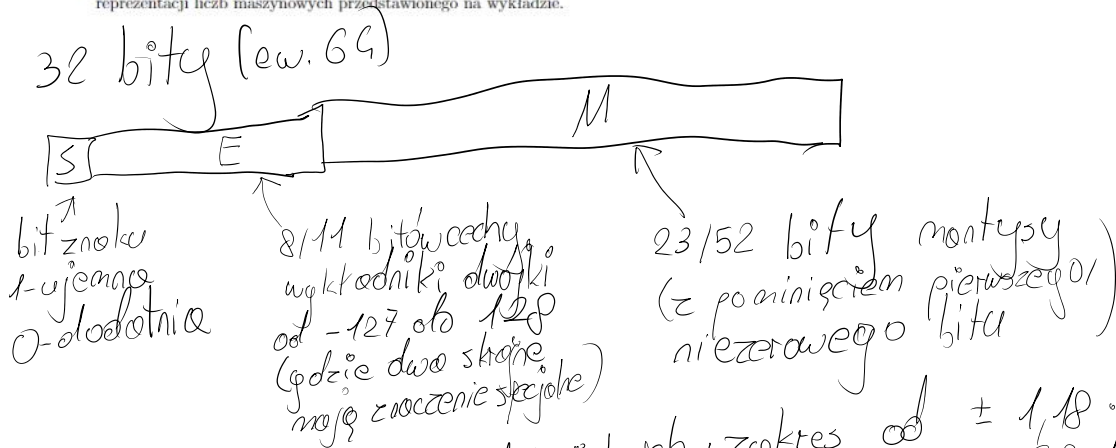 reprezentacji liczb maszynowych przedstawionego na wykładzie.
32 bity (ew. 64)
S E M
bit znaku
1-ujemna
0-dodatnia
8/11 bitów cechy,
wykładniki dwójki
od -127 do 128
(gdzie dwa skrajne
mają znaczenie specjalne)
23/52 bity mantysy
(z pominięciem pierwszego/
niezerowego bitu)
zakres od ± 1,18 ·